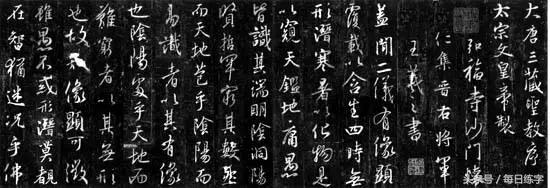 大唐三藏聖教序
太宗文皇帝製
弘福寺沙門懷
仁集晉右將軍
王羲之書
蓋聞二儀有像顯
覆載以含生四時無
形潛寒暑以化物是
以窺天鑑地庸愚
皆識其端明陰洞陽
賢哲罕窮其數然
而天地苞乎陰陽而
易識者以其有像
也陰陽處乎天地而
難窮者以其無形
也故像顯可徵
雖愚不惑形潛莫覩
在智猶迷況乎佛
头条号 / 每日练字